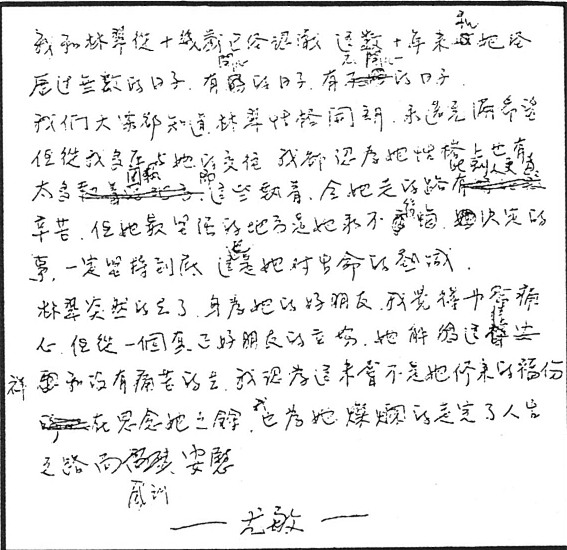 我和林翠從十幾歲已經認識 這數十年來我和她經
歷过無數的日子. 有開心的日子. 有不開心的日子.
我们大家都知道林翠性格開朗. 永遠充滿希望
但從我多年与她的交往 我卻認為她性格上也有
太多固執 即這些執着. 令她走的路比別人更為
辛苦. 但她最堅強的地方是她永不後悔. 決定的
事, 一定堅持到底 這也是她对生命的熱誠.
林翠突然的去了. 身為她的好朋友. 我覺得十分痛
心. 但從一個真正好朋友的立場. 她能夠這樣安
祥和沒有痛苦的去. 我認為這未嘗不是她修来的福份
在思念她之餘, 我也為她燦爛的走完了人生
之路而感到安慰
— 尤敏 —